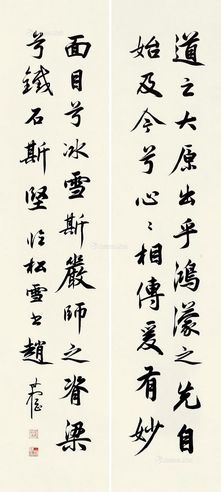 道之大原出乎鴻濛之先自
始及今兮心〻相傳爰有妙
面目兮冰雪斯嚴師之脊梁
兮鐵石斯堅临松雪書趙